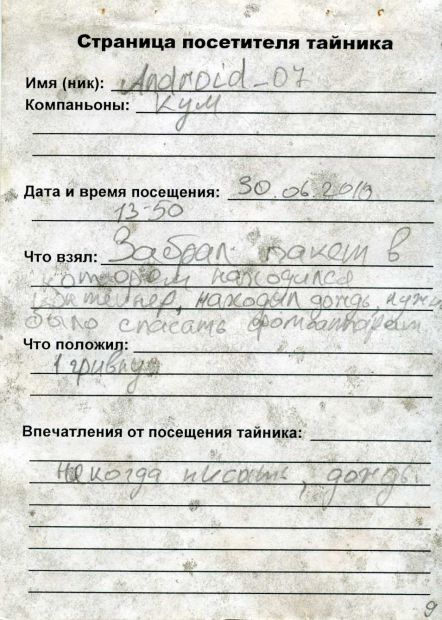 Страница посетителя тайника
Имя (ник): Android_07
Компаньоны: Кум
Дата и время посещения: 30.06.2010
13-50
Что взял: Забрал пакет в
котором находился
контейнер, находил дождь, нужно
было спасать фотоаппарат
Что положил:
1 гривну
Впечатления от посещения тайника:
некогда писать, дождь
9